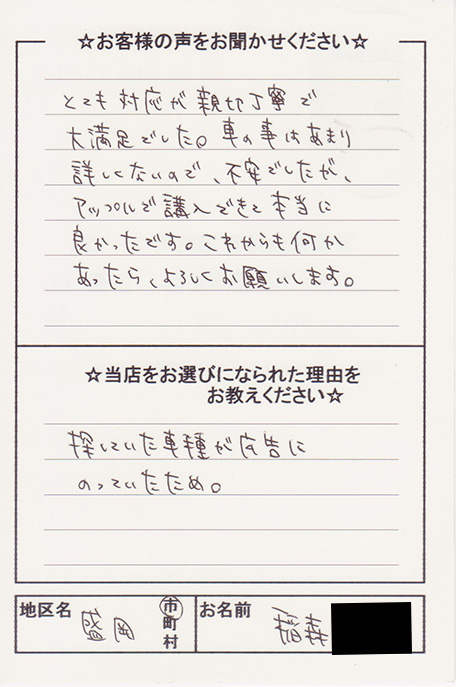 ☆お客様の声をお聞かせください☆
とても対応が親切丁寧で
大満足でした。車の事はあまり
詳しくないので、不安でしたが、
アップルで講入できて本当に
良かったです。これからも何か
あったら、よろしくお願いします。
☆当店をお選びになられた理由を
お教えください☆
探していた車種が広告に
のっていたため。
地区名 盛岡 市町村 お名前 稲森